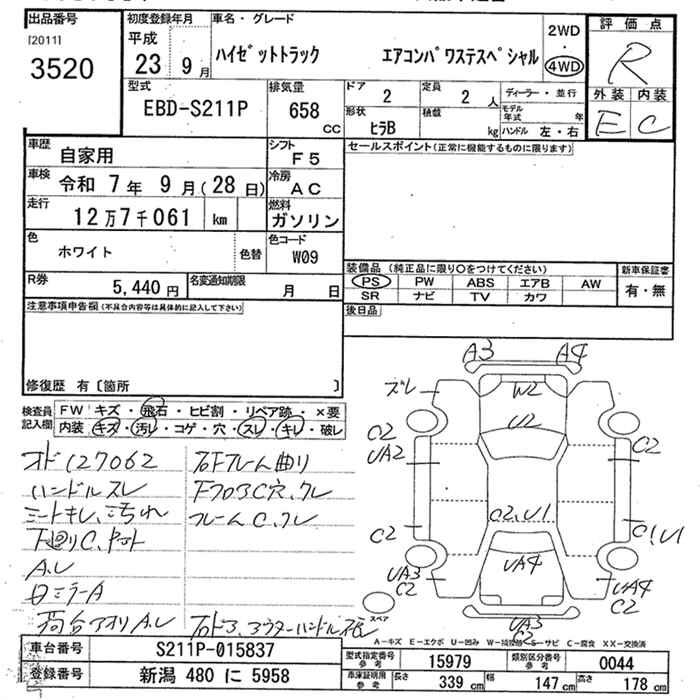 出品番号
[2011]
3520
初度登録年月
平成
23 9 月
車名・グレード
ハイゼットトラック エアコンパワステスペシャル
2WD
・
4WD
評価点
R
外装 内装
E C
型式
EBD-S211P
排気量
658
CC
ドア
2
定員
2 人
形状
ヒラB
積載
kg
ディーラー・並行
モデル年式 年
ハンドル 左・右
車歴
自家用
シフト
F5
車検
令和 7年 9月(28日)
冷房
AC
走行
12万7千061 km
燃料
ガソリン
色
ホワイト
色替
色コード
W09
R券
5,440円
名変通知期限
月 日
セールスポイント(正常に機能するものに限ります)
装備品 (純正品に限り○をつけてください)
PS PW ABS エアB AW
SR ナビ TV カワ
新車保証書
有・無
後日品
注意事項申告欄(不具合内容等は具体的に記入して下さい)
修復歴 有〔箇所 〕
検査員記入欄
FW キズ・飛石・ヒビ割・リペア跡・×要
内装 キズ・汚レ・コゲ・穴・スレ・キレ・破レ
オド127062
ハンドルスレ
シートキレ、汚れ
下廻りC、
A.レ
ロミラーA
荷台アオリA.レ
右Fフレーム曲り
FフロアC穴、クレ
フレームC、クレ
A3 A4
ズレ
W2
U2
C2
UA2
C2
C2
C2、U1
C1,U1
UA3
C2
UA4
UA4
C2
UA3
C2
スペア
A-キズ E-エクボ U-凹み W-補修跡 S-サビ C-腐食 XX-交換済
車台番号
S211P-015837
登録番号
新潟 480 に 5958
型式指定番号
参考
15979
類別区分番号
参考
0044
車庫証明用
参考
長さ 339 cm
幅 147 cm
高さ 178 cm